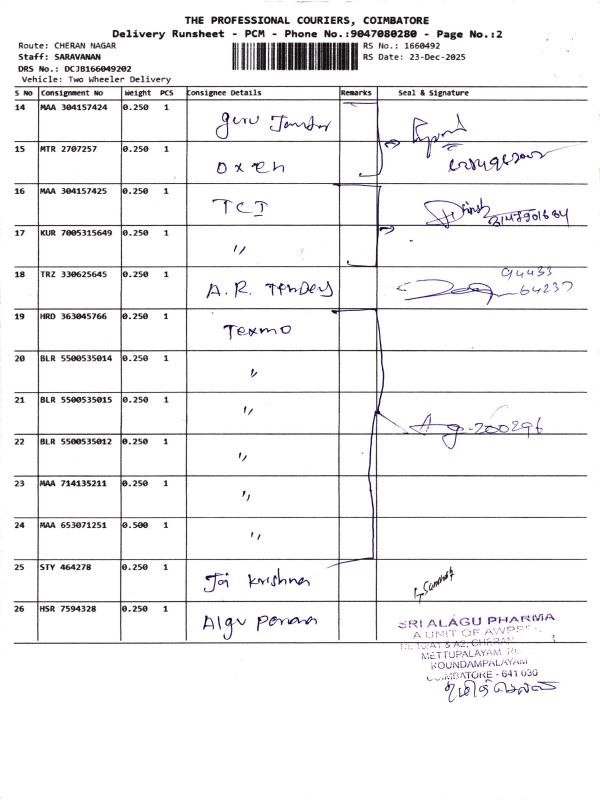 THE PROFESSIONAL COURIERS, COIMBATORE
Delivery Runsheet - PCM - Phone No.:9047080280 - Page No.:2
Route: CHERAN NAGAR
RS No.: 1660492
Staff: SARAVANAN
RS Date: 23-Dec-2025
DRS No.: DCJB166049202
Vehicle: Two Wheeler Delivery
S No Consignment No Weight PCS Consignee Details Remarks Seal & Signature
14 MAA 304157424 0.250 1
15 MTR 2707257 0.250 1 Oxen
16 MAA 304157425 0.250 1 TCI
17 KUR 7005315649 0.250 1 "
18 TRZ 330625645 0.250 1 A.R. 94433
64237
19 HRD 363045766 0.250 1 Texmo
20 BLR 5500535014 0.250 1 "
21 BLR 5500535015 0.250 1 "
200296
22 BLR 5500535012 0.250 1 "
23 MAA 714135211 0.250 1 "
24 MAA 653071251 0.500 1 "
25 STY 464278 0.250 1 Jai Krishna
26 HSR 7594328 0.250 1
SRI ALAGU PHARMA
A UNIT OF
METTUPALAYAM
KOUNDAMPALAYAM
COIMBATORE - 641 030